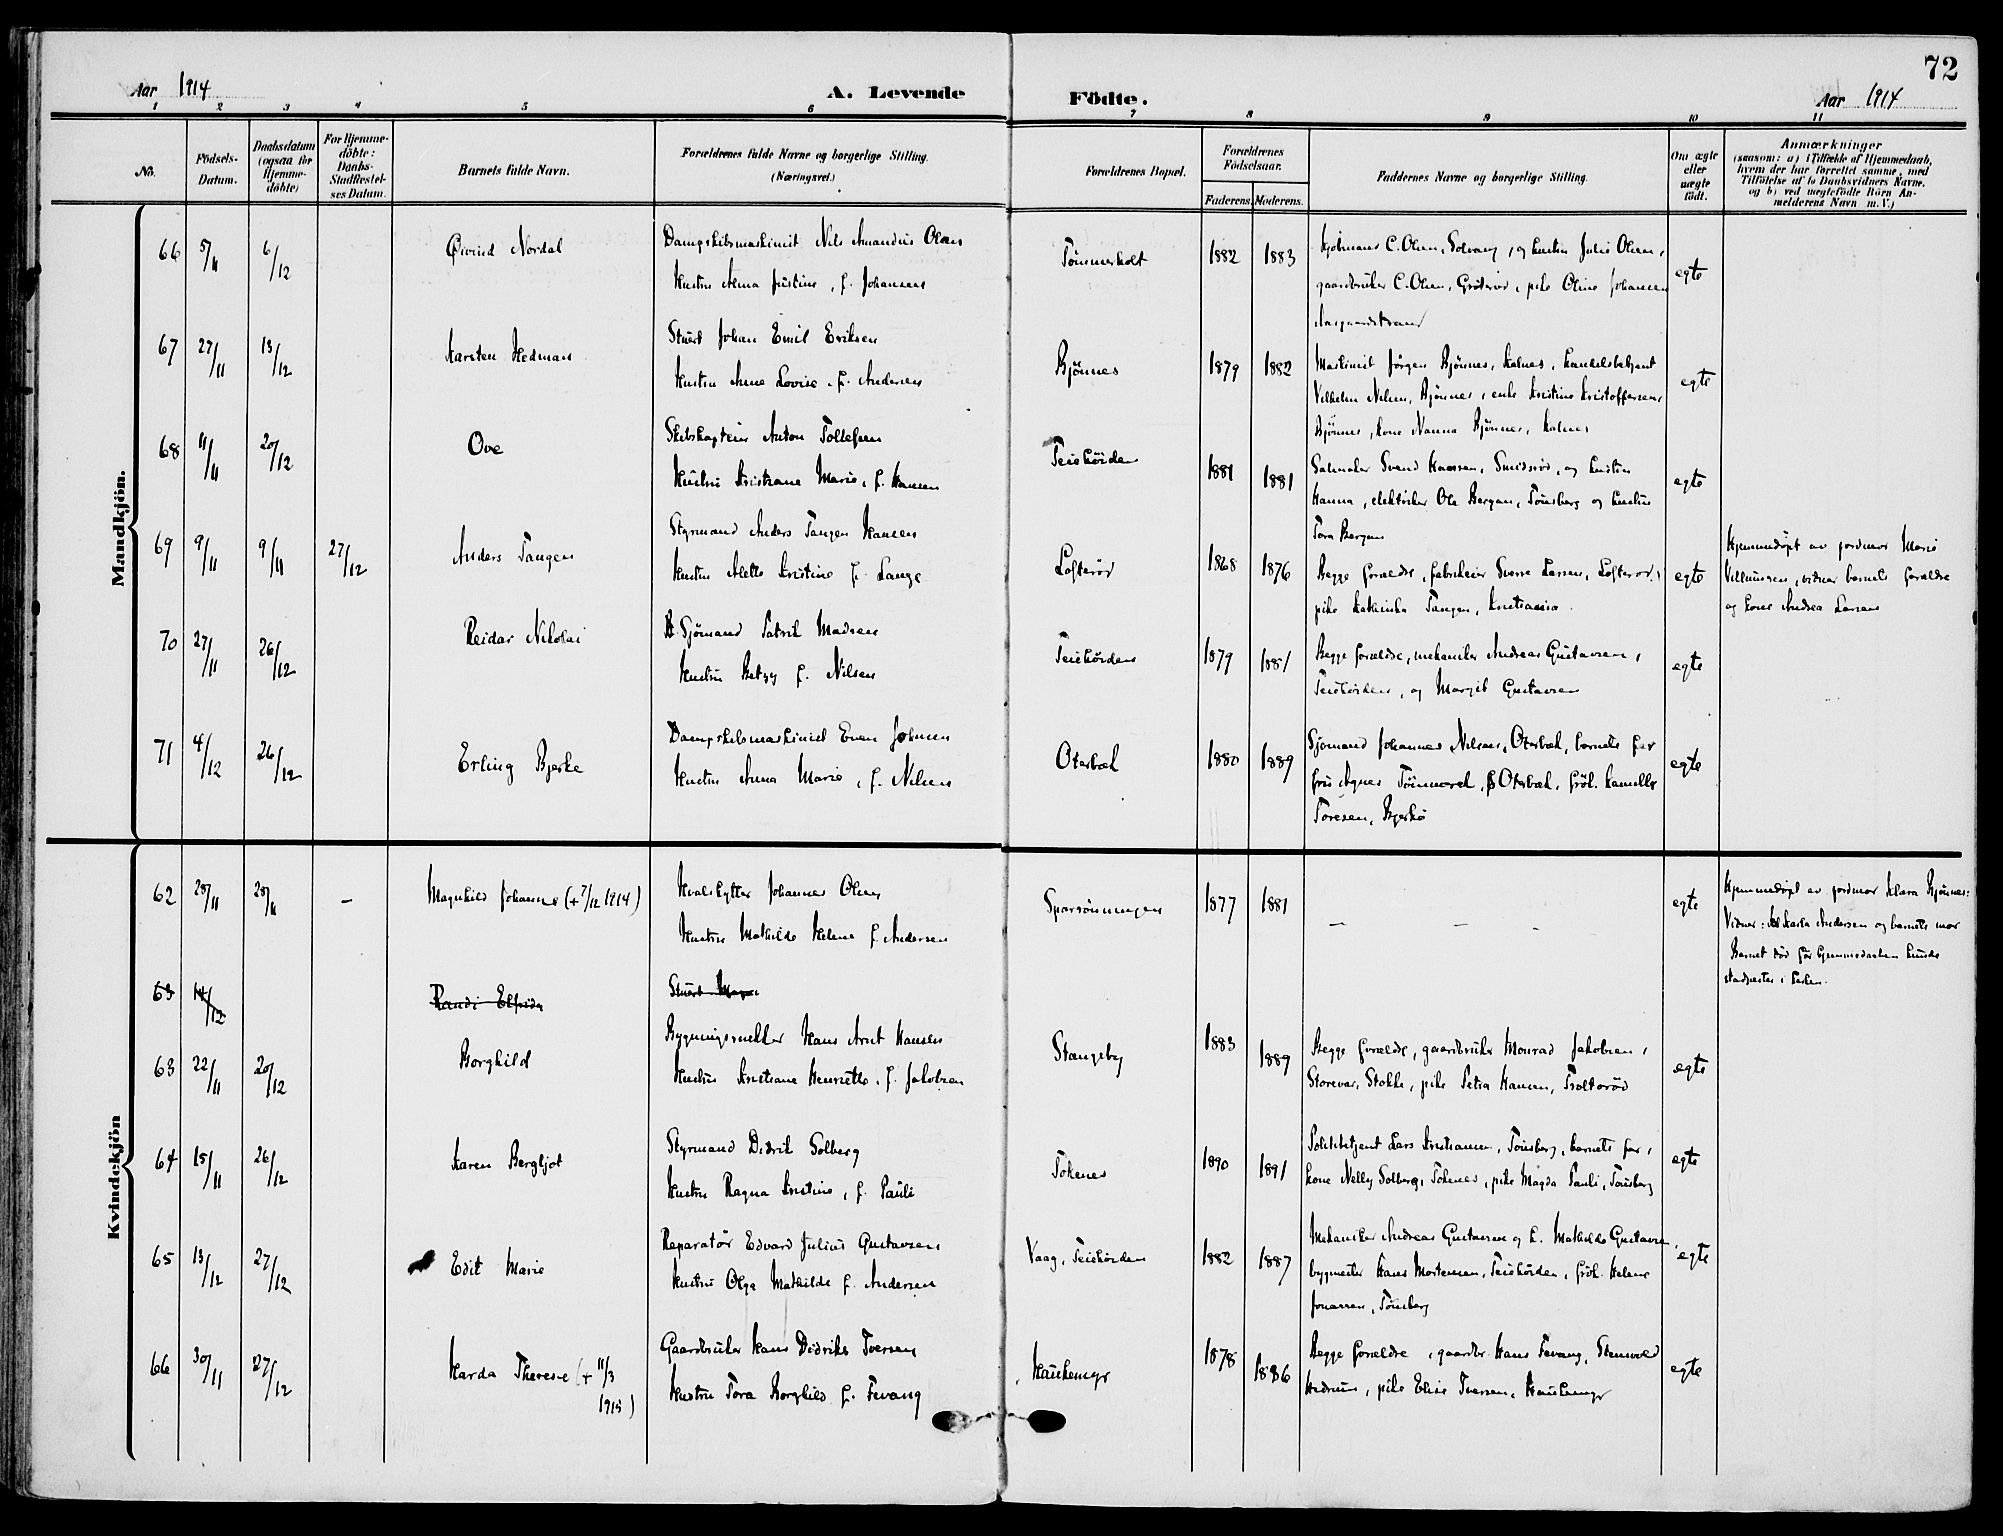 72
Aar 1914
A. Levende
Födte.
Aar 1914
1 2 3 4 5 6 7 8 9 10 11
No.
Födsels-
Datum.
Daabsdatum
(ogsaa for
Hjemme-
döbte)
For Hjemme-
döbte:
Daabs-
Stadfæstel-
ses Datum.
Barnets fulde Navn.
Forældrenes fulde Navne og borgerlige Stilling.
(Næringsvei.)
Forældrenes Bopæl.
Forældrenes
Födselsaar.
Faderens. Moderens.
Faddernes Navne og borgerlige Stilling.
Om ægte
eller
uægte
födt.
Anmærkninger
(saasom: a) i Tilfælde af Hjemmedaab,
hvem der har forrettet samme, med
Tilföielse af to Daabsvidners Navne.
og b) ved uægtefödte Börn An-
melderens Navn m. V.)
Mandkjön.
66 5/11 6/12 Øivind Nordal
Dampskibsmaskinist Nils Amandus Olsen
Hustru Alma Justine, f. Johansen
Tömmerholt 1882 1883
C. Olsen, Solvang, og hustru Julie Olsen,
gaardbruker C. Olsen, pike Oline Johansen
Aasgaardstrand
egte
67 27/11 13/12 Karsten Hedman
Stuert Johan Emil Eriksen
Hustru Anne Lovise, f. Andersen
Bjönnes 1879 1882
Maskinist Jörgen Bjönnes, Kalnes, handelsbetjent
Vilhelm Nilsen, Bjönnes, enke Kristine Kristoffersen,
Bjönnes, kone Nanna Bjönnes, Kalnes
egte
68 11/11 20/12 Ove
Skibskaptein Anton Tollefsen
Hustru Kristiane Marie, f. Hansen
Teiehöiden 1881 1881
Salmaker Svend Hansen, Smidsröd, og hustru
Hanna, elektriker Ole Bergan, Tönsberg og hustru
Tora Bergan
egte
69 9/11 9/11 27/12 Anders Tangen
Styrmand Anders Tangen Hansen
Hustru Alette Kristine f. Lange
Lofteröd 1868 1876
Begge forældre, fabrikeier Sverre Larsen, Lofteröd,
pike Kathinka Tangen, Kristiania.
egte
Hjemmedöpt av jordmor Marie
Vellumgen, vidner barnets forældre
og kone Andrea Larsen
70 27/11 26/12 Reidar Nikolai
Sjömand Patrik Madsen
Hustru Betzy f. Nilsen
Teiehöiden 1879 1881
Begge forældre, mekaniker Andreas Gustavsen,
Teiehöiden, og Margit Gustavsen
egte
71 4/12 26/12 Erling Bjerke
Dampskibsmaskinist Even Johnsen
Hustru Anna Marie, f. Nilsen
Oterbæk 1880 1889
Sjömand Johannes Nilsen, Oterbæk, barnets far
fru Agnes Oterbæk, frök. Kamilla
Toresen, Bjerkö
egte
Kvindekjön
62 28/11 28/11 — Magnhild Johanne (+ 7/12 1914)
Hvalskytter Johannes Olsen
Hustru Mathilde Helene f. Andersen
1877 1881
— — —
egte
Hjemmedöpt av jordmor Klara Bjönnes:
Vidner: Karla Andersen og barnets mor
Barnet död för hjemmedaaben kunde
stadfestes i kirken.
63 14/12 Randi Elfrida
Stuert
63 22/11 20/12 Borghild
Bygningssnekker Hans Arnt Hansen
Hustru Kristiane Henriette, f. Jakobsen
Stangeby 1883 1889
Begge forældre, gaardbruker Monrad Jakobsen,
Storevar, Stokke, pike Petra Hansen, Tvolteröd
egte
64 15/11 26/12 Karen Bergljot
Styrmand Didrik Solberg
Hustru Ragna Kristine, f. Pauli
Tokenes 1890 1891
Politibetjent Lars Kristiansen, Tönsberg, barnets far,
kone Nelly Solberg, Tokenes, pike Magda Pauli, Tönsberg
egte
65 13/12 27/12 Edit Marie
Reparatör Edvard Julius Gustavsen
Hustru Olga Mathilde f. Andersen
Vaag, Teiehöiden 1882 1887
Mekaniker Andreas Gustavsen og h. Mathilde Gustavsen,
bygmester Hans Mortensen, Teiehöiden, fröh. Helene
Jonassen, Tönsberg
egte
66 30/11 27/12 Harda Therese (+ 11/3
1915)
Gaardbruker Hans Didriks Iversen
Hustru Tora Borghild f. Fevang
Haukemyr 1878 1886
Begge forældre, gaardbr. Hans Fevang, Stensvold
Hedrum, pike Elise Iversen, Haukemyr
egte